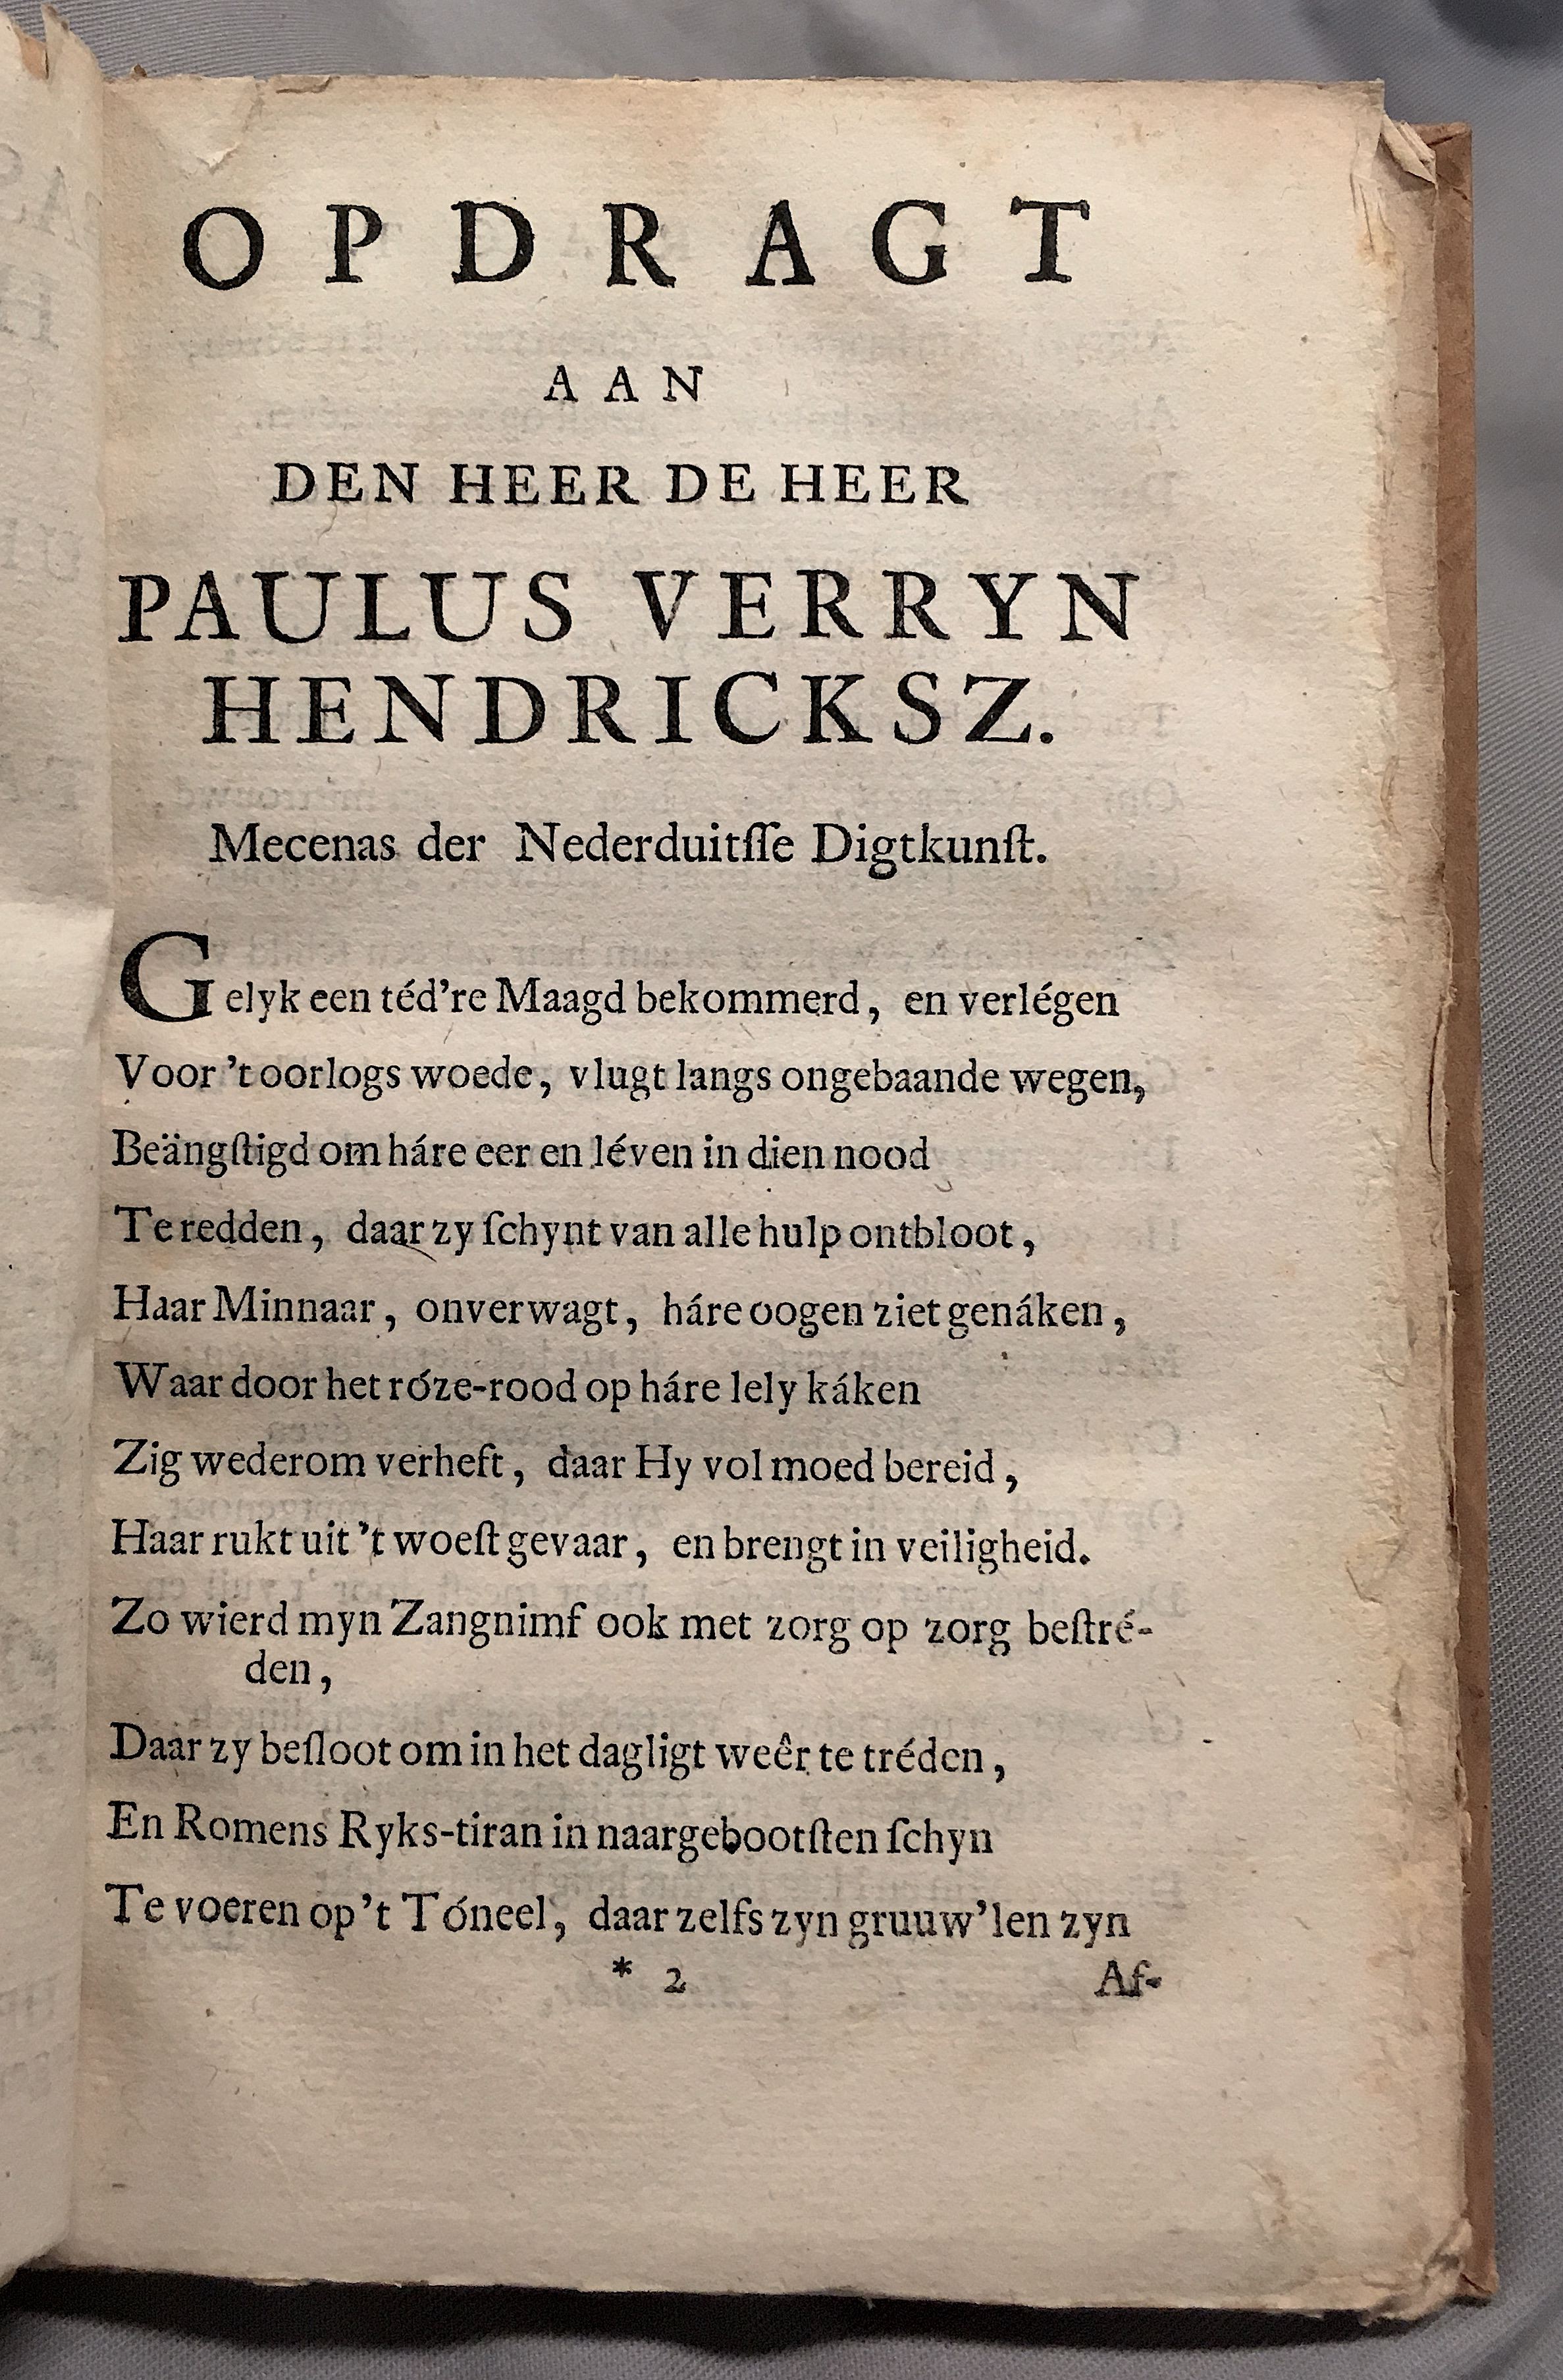 OPDRAGT
AAN
DEN HEER DE HEER
PAULUS VERRYN
HENDRICKSZ.
Mecenas der Nederduitſſe Digtkunſt.
Gelyk een téd're Maagd bekommerd, en verlégen
Voor 't oorlogs woede, vlugt langs ongebaande wegen,
Beängſtigd om háre eer en léven in dien nood
Te redden, daar zy ſchynt van alle hulp ontbloot,
Haar Minnaar, onverwagt, háre oogen ziet genáken,
Waar door het róze-rood op háre lely káken
Zig wederom verheft, daar Hy vol moed bereid,
Haar rukt uit 't woeſt gevaar, en brengt in veiligheid.
Zo wierd myn Zangnimf ook met zorg op zorg beſtré-
den,
Daar zy beſloot om in het dagligt weêr te tréden,
En Romens Ryks-tiran in naargebootſten ſchyn
Te voeren op 't Tóneel, daar zelfs zyn gruuw'len zyn
* 2 Af-